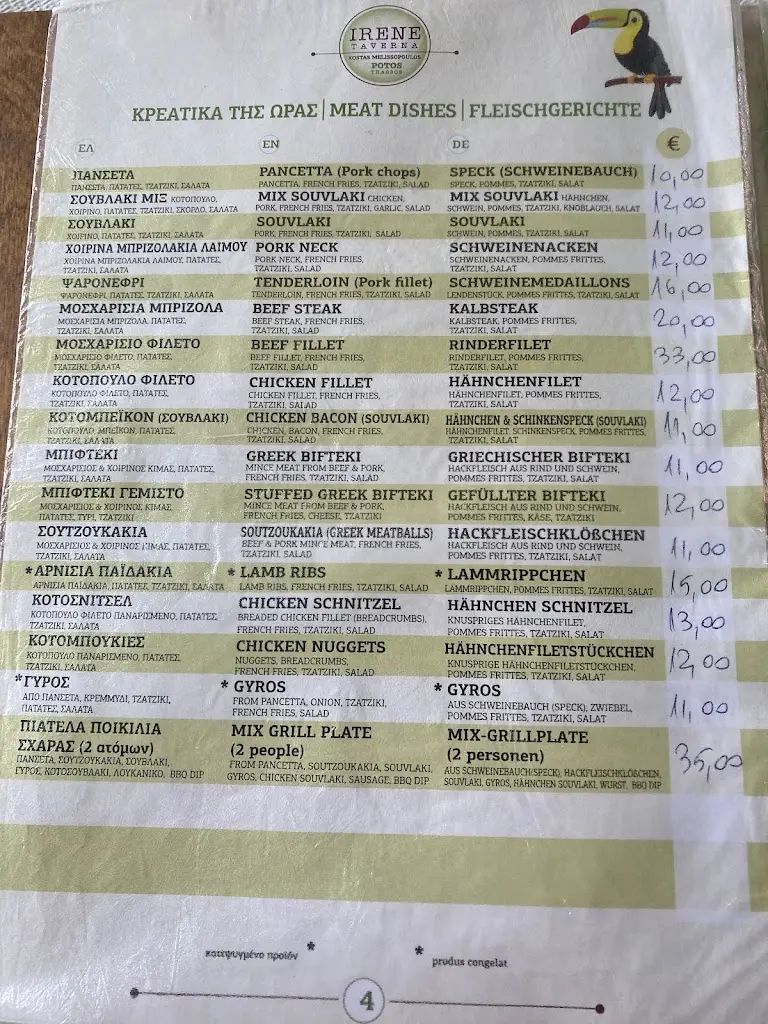 IRENE
TAVERNA
KOSTAS MELISSOPOULOS
POTOS
THASSOS
ΚΡΕΑΤΙΚΑ ΤΗΣ ΩΡΑΣ | MEAT DISHES | FLEISCHGERICHTE
ΕΛ EN DE €
ΠΑΝΣΕΤΑ PANCETTA (Pork chops) SPECK (SCHWEINEBAUCH) 10,00
ΠΑΝΣΕΤΑ, ΠΑΤΑΤΕΣ, ΤΖΑΤΖΙΚΙ, ΣΑΛΑΤΑ PANCETTA, FRENCH FRIES, TZATZIKI, SALAD SPECK, POMMES, TZATZIKI, SALAT
ΣΟΥΒΛΑΚΙ ΜΙΞ ΚΟΤΟΠΟΥΛΟ, MIX SOUVLAKI CHICKEN, MIX SOUVLAKI HÄHNCHEN, 12,00
ΧΟΙΡΙΝΟ, ΠΑΤΑΤΕΣ, ΤΖΑΤΖΙΚΙ, ΣΚΟΡΔΟ, ΣΑΛΑΤΑ PORK, FRENCH FRIES, TZATZIKI, GARLIC, SALAD SCHWEIN, POMMES, TZATZIKI, KNOBLAUCH, SALAT
ΣΟΥΒΛΑΚΙ SOUVLAKI SOUVLAKI 11,00
ΧΟΙΡΙΝΟ, ΠΑΤΑΤΕΣ, ΤΖΑΤΖΙΚΙ, ΣΑΛΑΤΑ PORK, FRENCH FRIES, TZATZIKI, SALAD SCHWEIN, POMMES, TZATZIKI, SALAT
ΧΟΙΡΙΝΑ ΜΠΡΙΖΟΛΑΚΙΑ ΛΑΙΜΟΥ PORK NECK SCHWEINENACKEN 12,00
ΧΟΙΡΙΝΑ ΜΠΡΙΖΟΛΑΚΙΑ ΛΑΙΜΟΥ, ΠΑΤΑΤΕΣ, PORK NECK, FRENCH FRIES, SCHWEINENACKEN, POMMES FRITTES,
ΤΖΑΤΖΙΚΙ, ΣΑΛΑΤΑ TZATZIKI, SALAD TZATZIKI, SALAT
ΨΑΡΟΝΕΦΡΙ TENDERLOIN (Pork fillet) SCHWEINEMEDAILLONS 16,00
ΨΑΡΟΝΕΦΡΙ, ΠΑΤΑΤΕΣ, ΤΖΑΤΖΙΚΙ, ΣΑΛΑΤΑ TENDERLOIN, FRENCH FRIES, TZATZIKI, SALAD LENDENSTÜCK, POMMES FRITTES, TZATZIKI, SALAT
ΜΟΣΧΑΡΙΣΙΑ ΜΠΡΙΖΟΛΑ BEEF STEAK KALBSTEAK 20,00
ΜΟΣΧΑΡΙΣΙΑ ΜΠΡΙΖΟΛΑ, ΠΑΤΑΤΕΣ, BEEF STEAK, FRENCH FRIES, KALBSTEAK, POMMES FRITTES,
ΤΖΑΤΖΙΚΙ, ΣΑΛΑΤΑ TZATZIKI, SALAD TZATZIKI, SALAT
ΜΟΣΧΑΡΙΣΙΟ ΦΙΛΕΤΟ BEEF FILLET RINDERFILET 33,00
ΜΟΣΧΑΡΙΣΙΟ ΦΙΛΕΤΟ, ΠΑΤΑΤΕΣ, BEEF FILLET, FRENCH FRIES, RINDERFILET, POMMES FRITTES,
ΤΖΑΤΖΙΚΙ, ΣΑΛΑΤΑ TZATZIKI, SALAD TZATZIKI, SALAT
ΚΟΤΟΠΟΥΛΟ ΦΙΛΕΤΟ CHICKEN FILLET HÄHNCHENFILET 12,00
ΚΟΤΟΠΟΥΛΟ ΦΙΛΕΤΟ, ΠΑΤΑΤΕΣ, CHICKEN FILLET, FRENCH FRIES, HÄHNCHENFILET, POMMES FRITTES,
ΤΖΑΤΖΙΚΙ, ΣΑΛΑΤΑ TZATZIKI, SALAD TZATZIKI, SALAT
ΚΟΤΟΜΠΕΪΚΟΝ (ΣΟΥΒΛΑΚΙ) CHICKEN BACON (SOUVLAKI) HÄHNCHEN & SCHINKENSPECK (SOUVLAKI) 11,00
ΚΟΤΟΠΟΥΛΟ, ΜΠΕΪΚΟΝ, ΠΑΤΑΤΕΣ, CHICKEN, BACON, FRENCH FRIES, HÄHNCHENFILET, SCHINKENSPECK, POMMES FRITTES,
ΤΖΑΤΖΙΚΙ, ΣΑΛΑΤΑ TZATZIKI, SALAD TZATZIKI, SALAT
ΜΠΙΦΤΕΚΙ GREEK BIFTEKI GRIECHISCHER BIFTEKI 11,00
ΜΟΣΧΑΡΙΣΙΟΣ & ΧΟΙΡΙΝΟΣ ΚΙΜΑΣ, ΠΑΤΑΤΕΣ, MINCE MEAT FROM BEEF & PORK, HACKFLEISCH AUS RIND UND SCHWEIN,
ΤΖΑΤΖΙΚΙ, ΣΑΛΑΤΑ FRENCH FRIES, TZATZIKI, SALAD POMMES FRITTES, TZATZIKI, SALAT
ΜΠΙΦΤΕΚΙ ΓΕΜΙΣΤΟ STUFFED GREEK BIFTEKI GEFÜLLTER BIFTEKI 12,00
ΜΟΣΧΑΡΙΣΙΟΣ & ΧΟΙΡΙΝΟΣ ΚΙΜΑΣ, MINCE MEAT FROM BEEF & PORK, HACKFLEISCH AUS RIND UND SCHWEIN,
ΠΑΤΑΤΕΣ, ΤΥΡΙ, ΤΖΑΤΖΙΚΙ FRENCH FRIES, CHEESE, TZATZIKI POMMES FRITTES, KÄSE, TZATZIKI
ΣΟΥΤΖΟΥΚΑΚΙΑ SOUTZOUKAKIA (GREEK MEATBALLS) HACKFLEISCHKLÖßCHEN 11,00
ΜΟΣΧΑΡΙΣΙΟΣ & ΧΟΙΡΙΝΟΣ ΚΙΜΑΣ, ΠΑΤΑΤΕΣ, BEEF & PORK MINCE MEAT, FRENCH FRIES, HACKFLEISCH AUS RIND UND SCHWEIN,
ΤΖΑΤΖΙΚΙ, ΣΑΛΑΤΑ TZATZIKI, SALAD POMMES FRITTES, TZATZIKI, SALAT
*ΑΡΝΙΣΙΑ ΠΑΪΔΑΚΙΑ * LAMB RIBS * LAMMRIPPCHEN 15,00
ΑΡΝΙΣΙΑ ΠΑΪΔΑΚΙΑ, ΠΑΤΑΤΕΣ, ΤΖΑΤΖΙΚΙ, ΣΑΛΑΤΑ LAMB RIBS, FRENCH FRIES, TZATZIKI, SALAD LAMMRIPPCHEN, POMMES FRITTES, TZATZIKI, SALAT
ΚΟΤΟΣΝΙΤΣΕΛ CHICKEN SCHNITZEL HÄHNCHEN SCHNITZEL 13,00
ΚΟΤΟΠΟΥΛΟ ΦΙΛΕΤΟ ΠΑΝΑΡΙΣΜΕΝΟ, ΠΑΤΑΤΕΣ, BREADED CHICKEN FILLET (BREADCRUMBS), KNUSPRIGES HÄHNCHENFILET,
ΤΖΑΤΖΙΚΙ, ΣΑΛΑΤΑ FRENCH FRIES, TZATZIKI, SALAD POMMES FRITTES, TZATZIKI, SALAT
ΚΟΤΟΜΠΟΥΚΙΕΣ CHICKEN NUGGETS HÄHNCHENFILETSTÜCKCHEN 12,00
ΚΟΤΟΠΟΥΛΟ ΠΑΝΑΡΙΣΜΕΝΟ, ΠΑΤΑΤΕΣ, NUGGETS, BREADCRUMBS, KNUSPRIGE HÄHNCHENFILETSTÜCKCHEN,
ΤΖΑΤΖΙΚΙ, ΣΑΛΑΤΑ FRENCH FRIES, TZATZIKI, SALAD POMMES FRITTES, TZATZIKI, SALAT
*ΓΥΡΟΣ * GYROS * GYROS 11,00
ΑΠΟ ΠΑΝΣΕΤΑ, ΚΡΕΜΜΥΔΙ, ΤΖΑΤΖΙΚΙ, FROM PANCETTA, ONION, TZATZIKI, AUS SCHWEINEBAUCH (SPECK), ZWIEBEL,
ΠΑΤΑΤΕΣ, ΣΑΛΑΤΑ FRENCH FRIES, SALAD POMMES FRITTES, TZATZIKI, SALAT
ΠΙΑΤΕΛΑ ΠΟΙΚΙΛΙΑ MIX GRILL PLATE MIX-GRILLPLATE 35,00
ΣΧΑΡΑΣ (2 ατόμων) (2 people) (2 personen)
ΠΑΝΣΕΤΑ, ΣΟΥΤΖΟΥΚΑΚΙΑ, ΣΟΥΒΛΑΚΙ, FROM PANCETTA, SOUTZOUKAKIA, SOUVLAKI, AUS SCHWEINEBAUCH(SPECK), HACKFLEISCHKLÖßCHEN,
ΓΥΡΟΣ, ΚΟΤΟΣΟΥΒΛΑΚΙ, ΛΟΥΚΑΝΙΚΟ, BBQ DIP GYROS, CHICKEN SOUVLAKI, SAUSAGE, BBQ DIP SOUVLAKI, GYROS, HÄHNCHEN SOUVLAKI, WURST, BBQ DIP
κατεψυγμένο προϊόν * * produs congelat
4